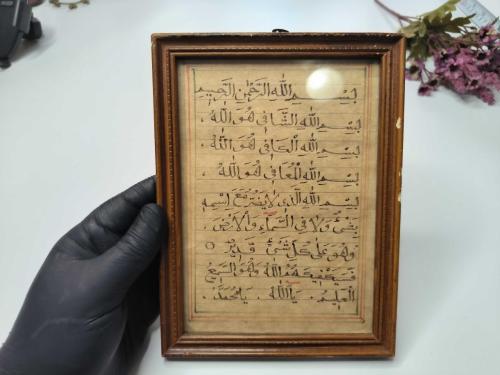 بِسْمِ اللهِ الرَّحْمٰنِ الرَّحِيمِ
بِسْمِ اللهِ الشَّافِي هُوَ اللهُ ،
بِسْمِ اللهِ الْكَافِي هُوَ اللهُ ،
بِسْمِ اللهِ الْمُعَافِي هُوَ اللهُ ،
بِسْمِ اللهِ الَّذِي لَا يَضُرُّ مَعَ اسْمِهِ
شَيْءٌ وَلَا فِي السَّمَاءِ وَالْأَرْضِ ،
وَهُوَ عَلَى كُلِّ شَيْءٍ قَدِيرٌ ○
فَسَيَكْفِيكَهُمُ اللهُ وَهُوَ السَّمِيعُ
الْعَلِيمُ . يَا اللهُ . يَا مُحَمَّدُ .